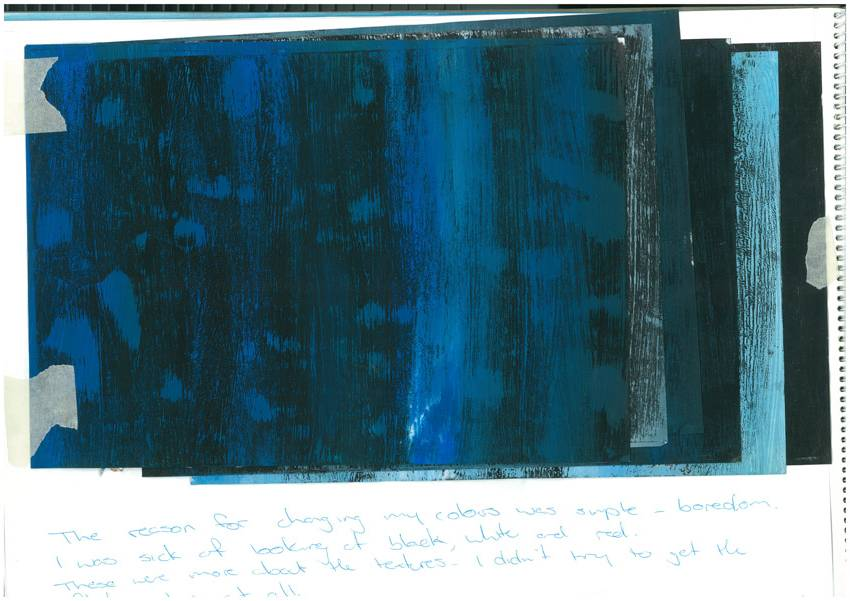 The reason for changing my colours was simple - boredom.
I was sick of looking at black, white and red.
These were more about the textures - I didn't try to get the
at all.